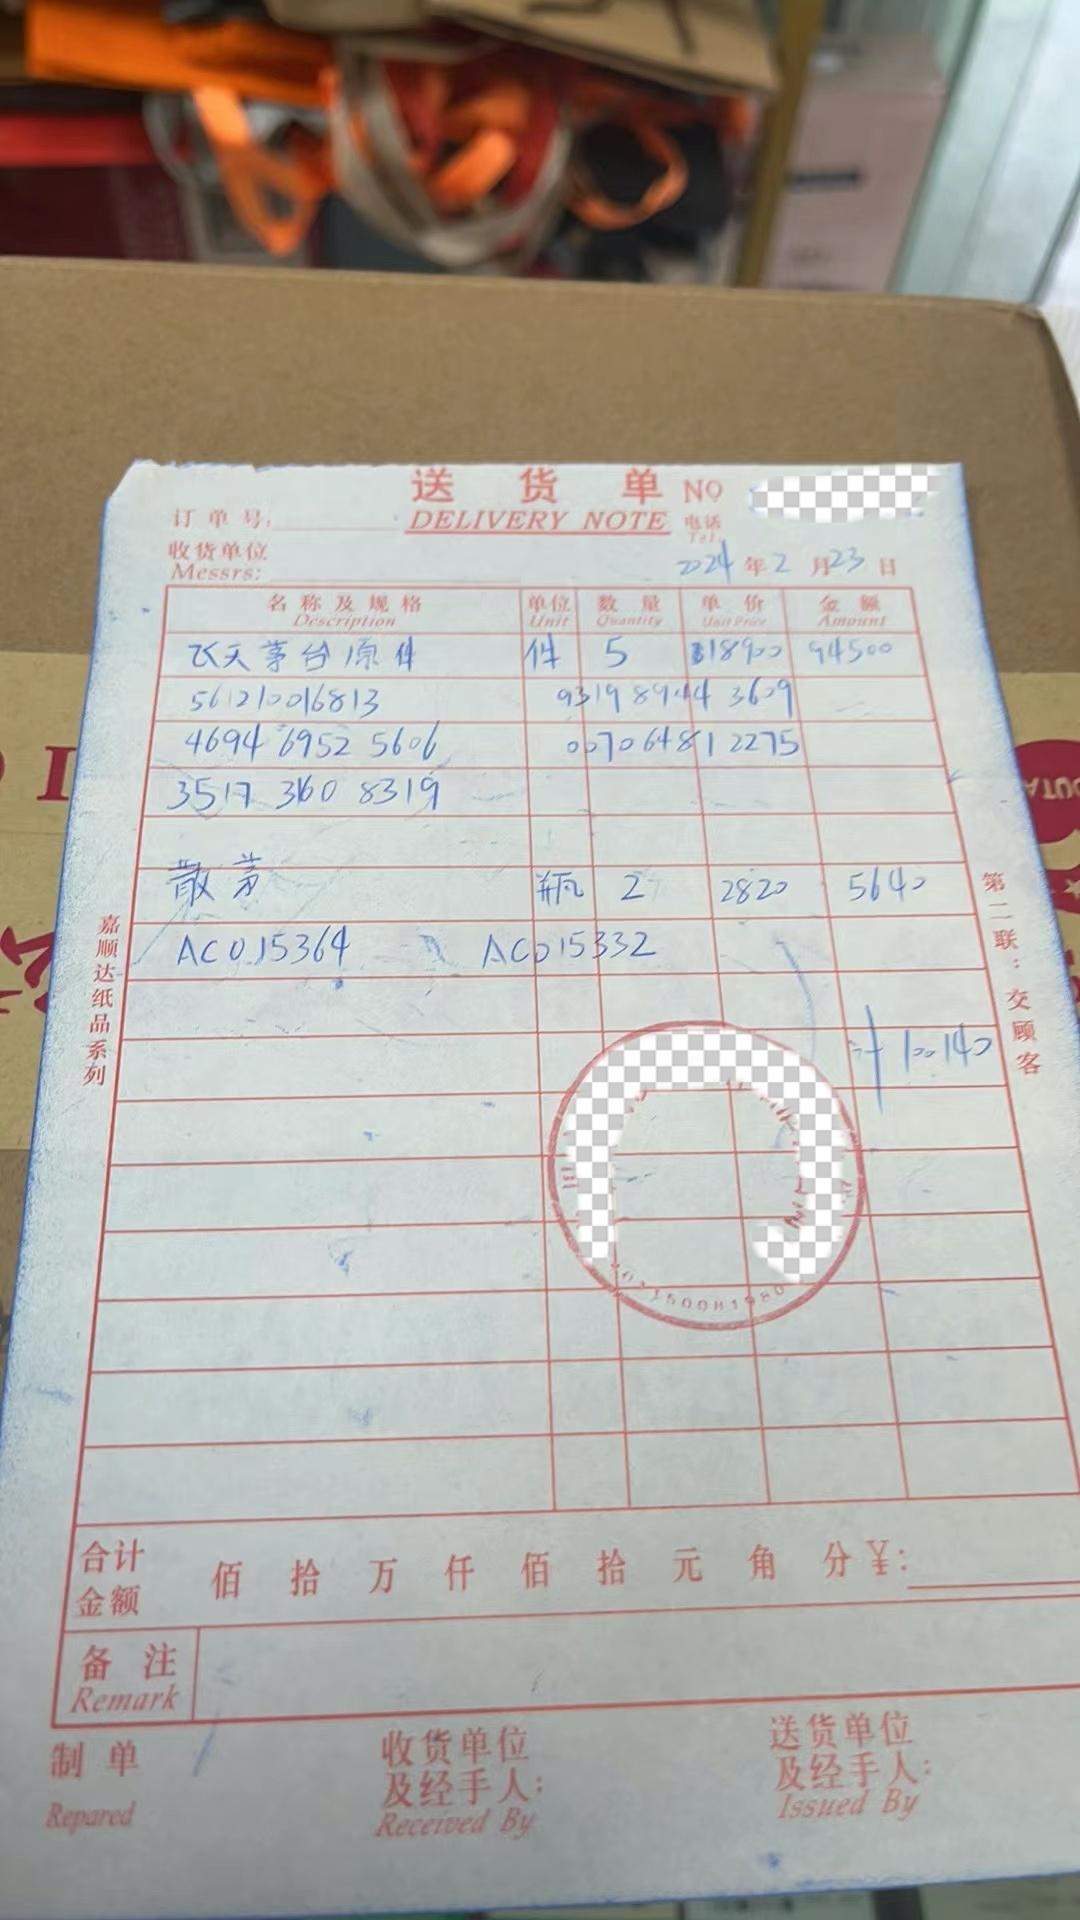 送货单 NO
订单号: DELIVERY NOTE 电话
Tel:
收货单位
Messrs: 2024年2月23日
名称及规格 单位 数量 单价 金额
Description Unit Quantity Unit Price Amount
飞天茅台原件 件 5 18900 94500
561210016813 93198944 3609
4694 6952 5606 007064812275
3517 360 8319
散茅 瓶 2 2820 5640
AC015364 AC015332
计 100140
嘉顺达纸品系列
第二联:交顾客
合计
金额 佰 拾 万 仟 佰 拾 元 角 分 ¥:
备注
Remark
制单 收货单位 送货单位
及经手人: 及经手人:
Repared Received By Issued By